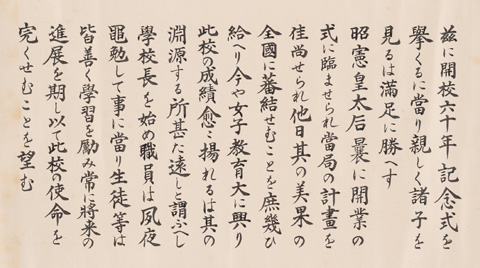 茲に開校六十年記念式を
擧くるに當り親しく諸子を
見るは滿足に勝へす
昭憲皇太后曩に開業の
式に臨ませられ當局の計畫を
佳尚せられ他日其の美果の
全國に蕃結せむことを庶幾ひ
給へり今や女子教育大に興り
此校の成績愈〻揚れるは其の
淵源する所甚た遠しと謂ふへし
學校長を始め職員は夙夜
黽勉して事に當り生徒等は
皆善く學習を勵み常に將來の
進展を期し以て此校の使命を
完くせむことを望む